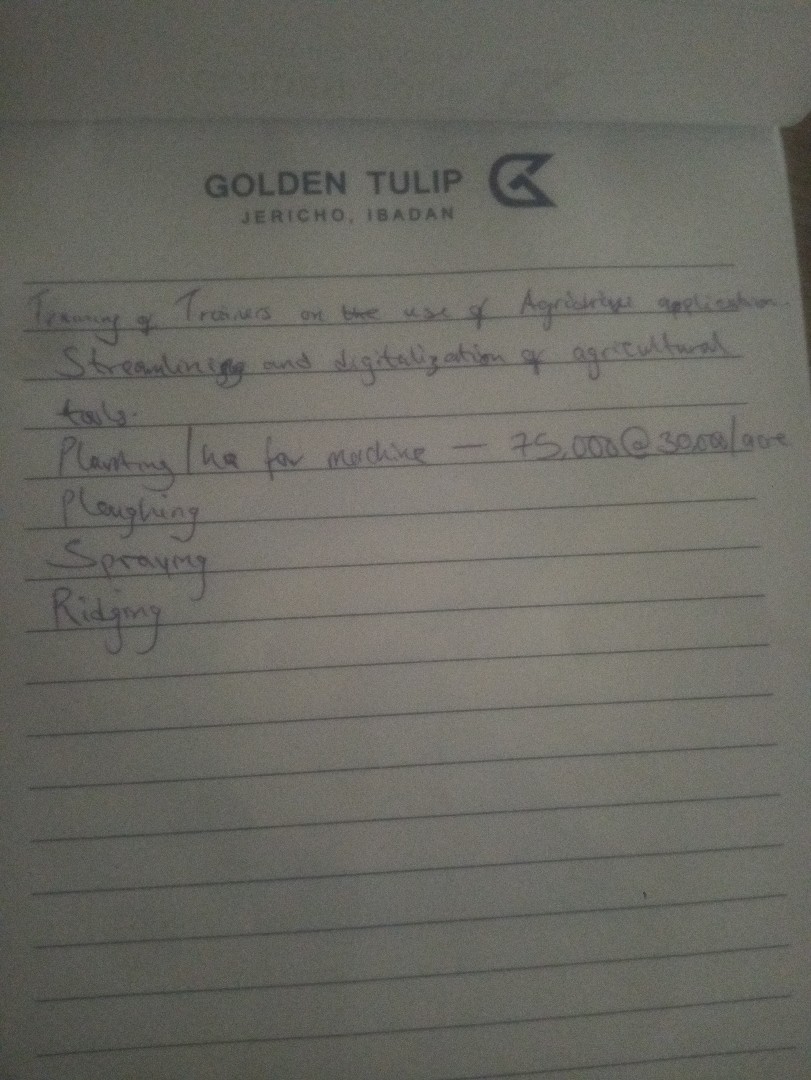 GOLDEN TULIP
JERICHO, IBADAN
Training of Trainers on the use of Agridrive application.
Streamlining and digitalization of agricultural
tools.
Planting/ha for machine — 75,000@30,000/acre
Ploughing
Spraying
Ridging